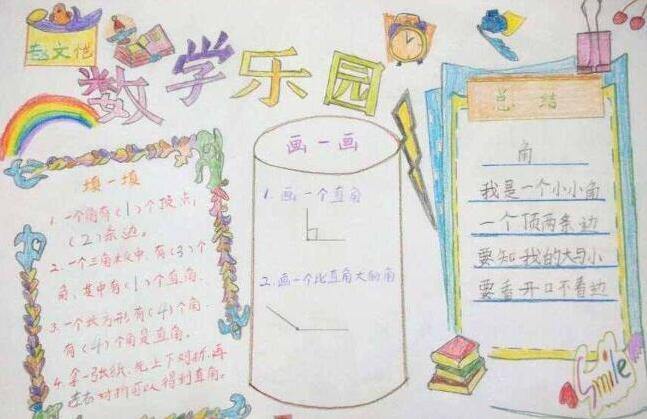 赵文恺
数学乐园
填一填
1.一个角有(1)个顶点,
(2)条边。
2.一个三角板中,有(3)个
角,其中有(1)个直角.
3.一个长方形,有(4)个角.
有(4)个角是直角。
4.拿一张纸,先上下对折,再
左右对折可以得到直角。
画一画
1.画一个直角
2.画一个比直角大的角
总结
角
我是一个小小角
一个顶两条边
要知我的大与小
要看开口不看边
Smile